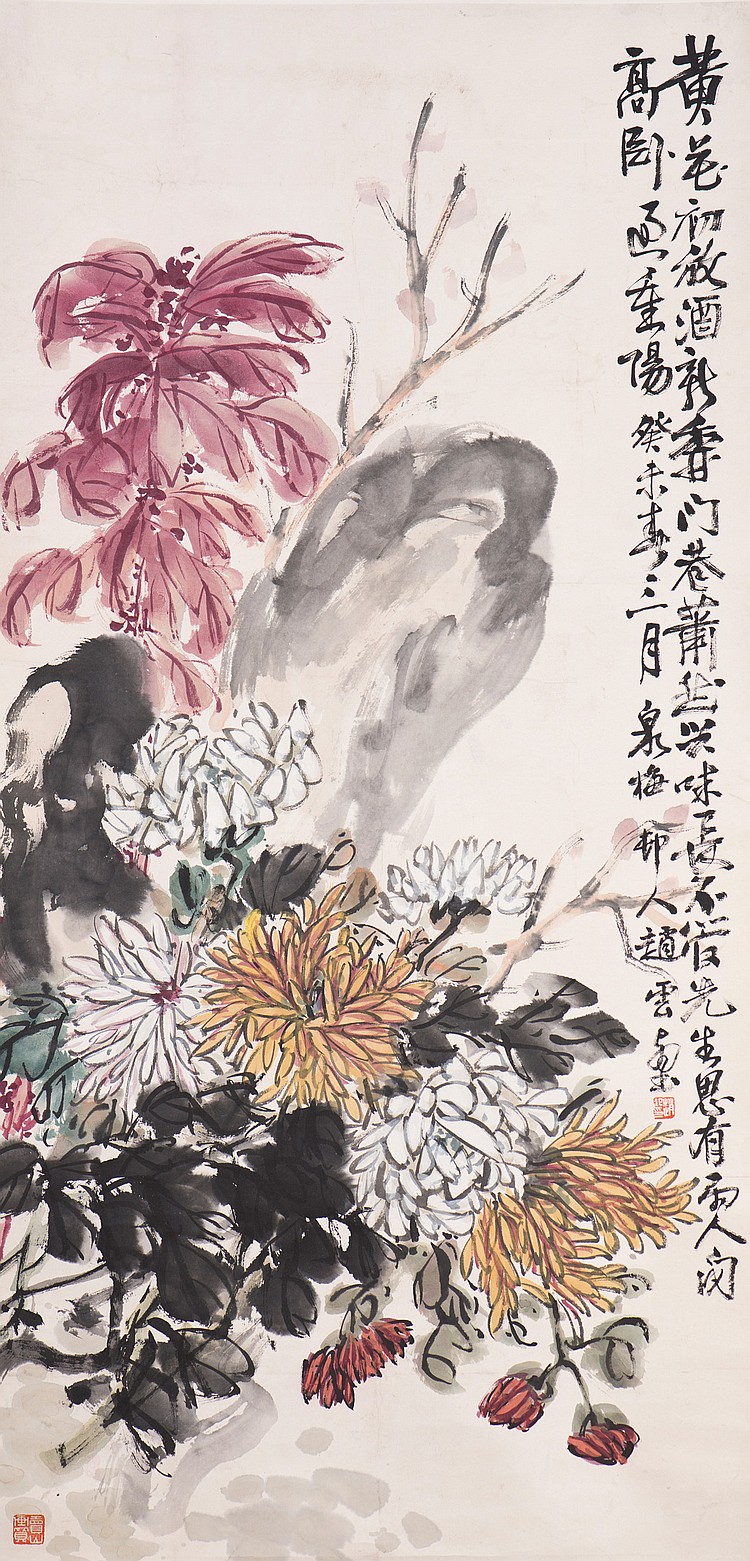 黄花初放酒新香门巷蕭然兴味長不管先生思有人间
高卧過重陽 癸未春三月 泉梅邨人趙雲壑